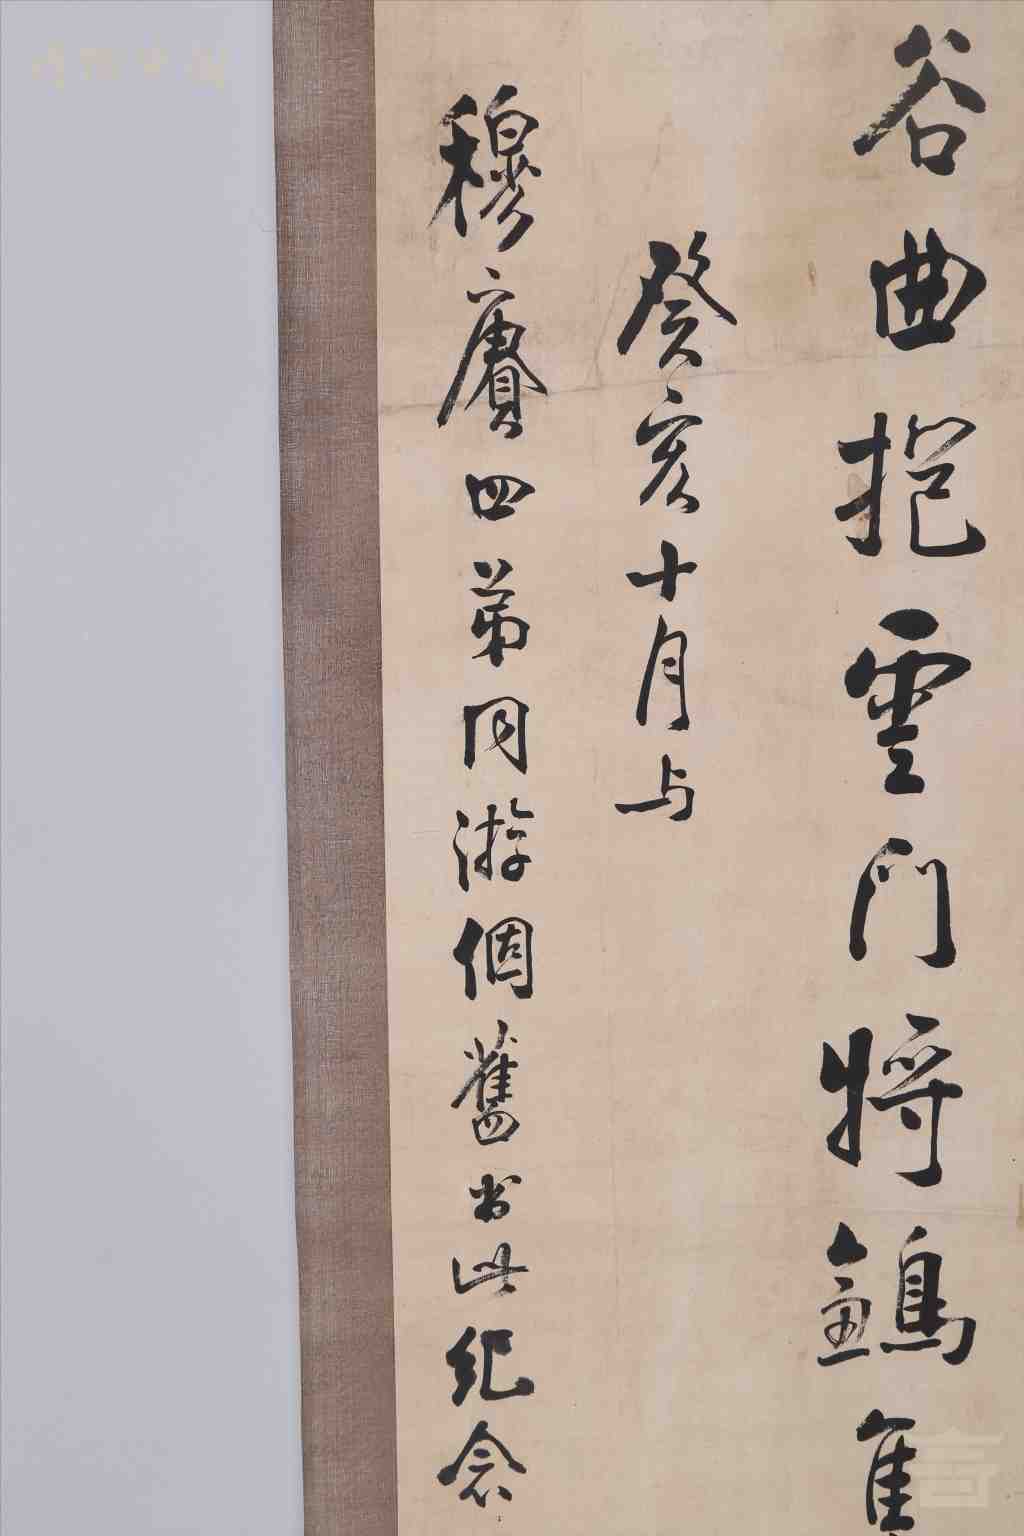 谷曲抱雲門將
癸亥十月与
穆賡四弟同游個舊书此紀念